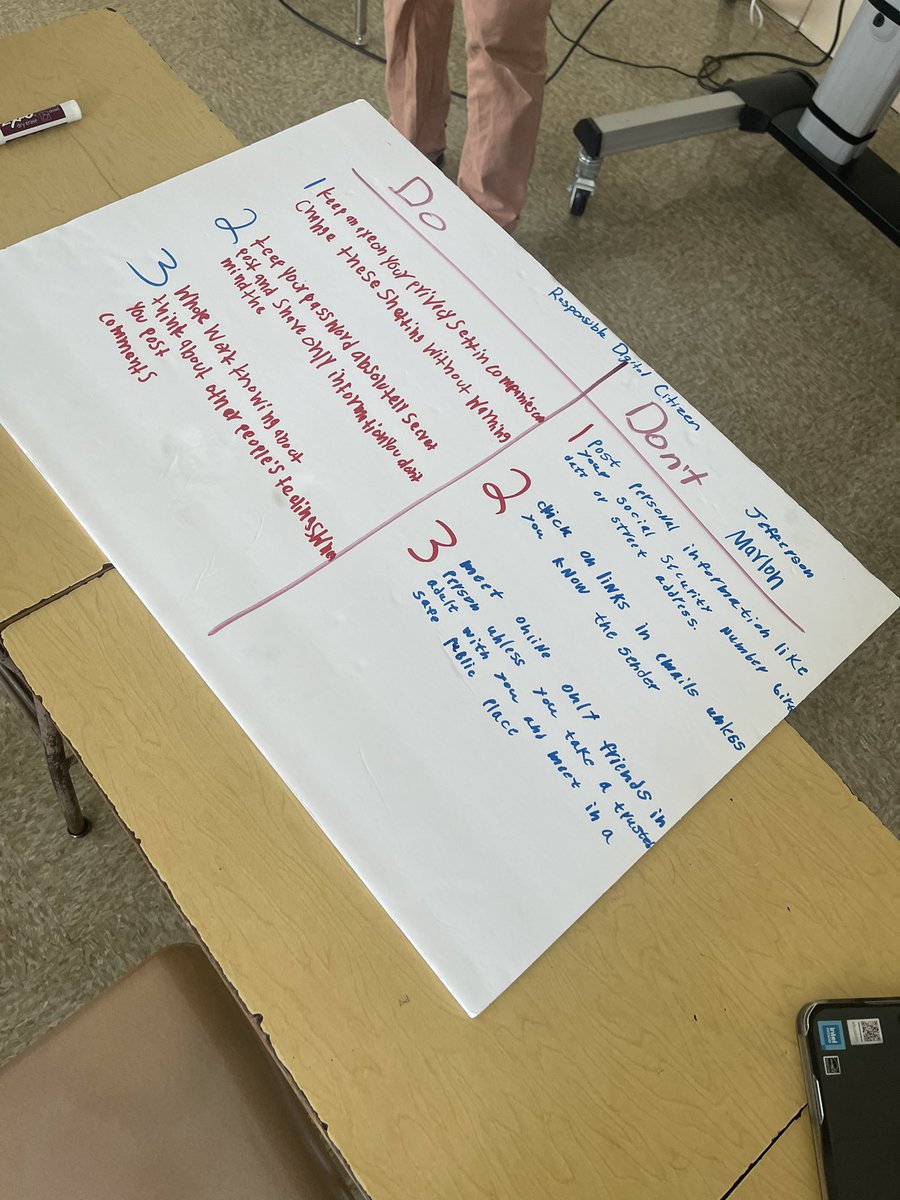 Responsible Digital Citizen
Jefferson
Marlon
Do
1 keep an eye on your privecy settin companies can
change these shetting without warning
2 keep your password absolutell secret
post and share only information you don't
mind the
3 Whole work knowing about
think about other people's feelings when
you post
comments
Don't
1 Post personal information like
your social security number bird
date or street address.
2 chick on links in emails unless
you know the sender
3 meet online only friends in
person unless you take a trusted
adult with you and meet in a
safe public place
EXPO
intel